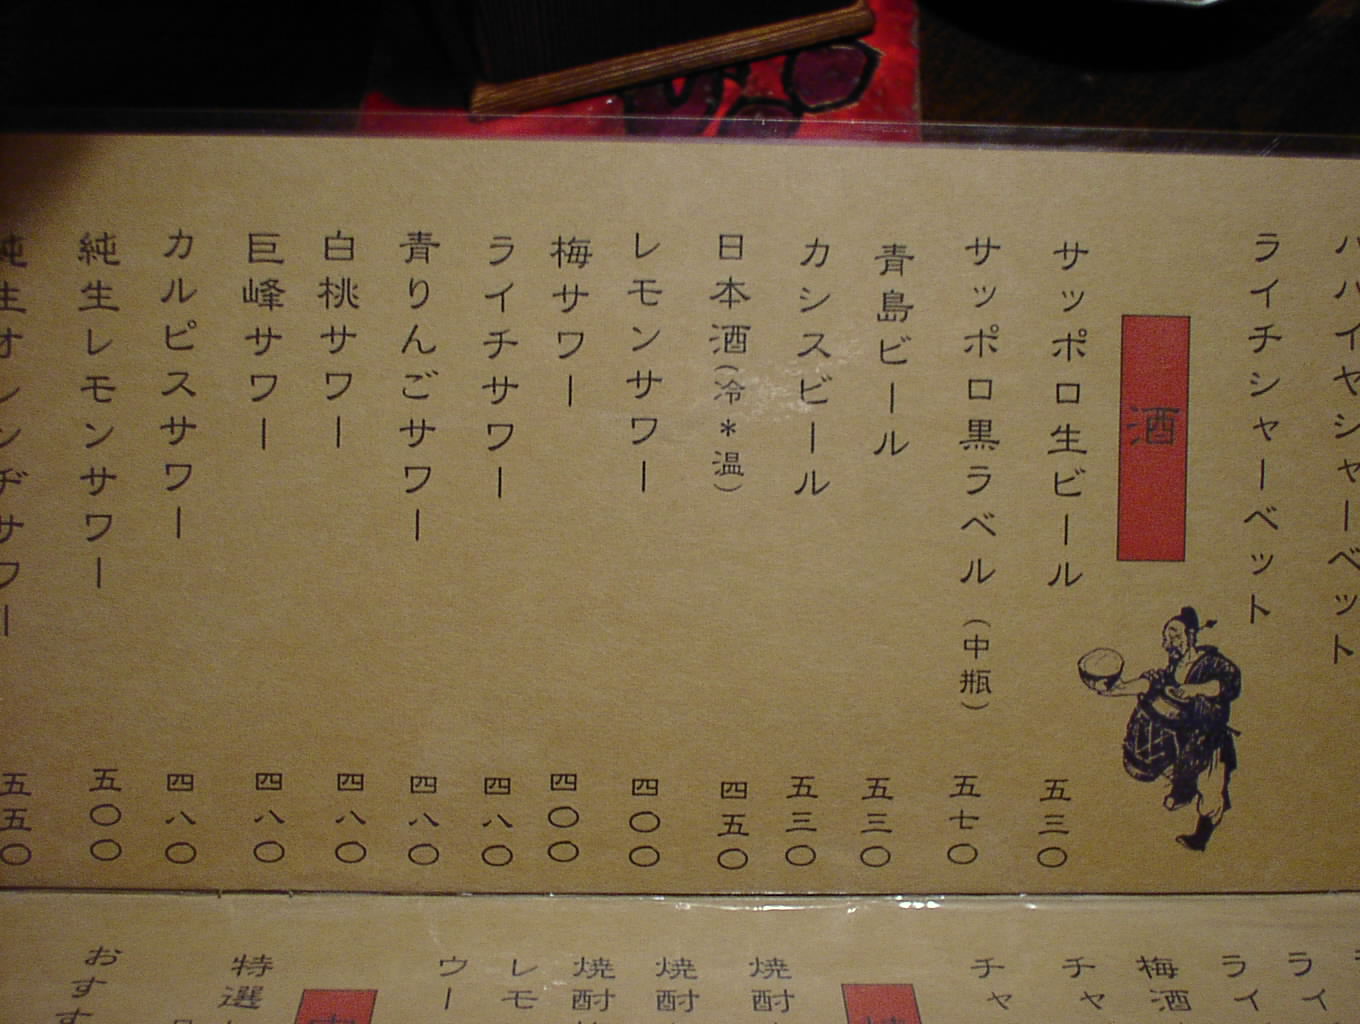 ハイヤシャーベット
ライチシャーベット
酒
サッポロ生ビール 五三〇
サッポロ黒ラベル(中瓶) 五七〇
青島ビール 五三〇
カシスビール 五三〇
日本酒(冷*温) 四五〇
レモンサワー 四〇〇
梅サワー 四〇〇
ライチサワー 四八〇
青りんごサワー 四八〇
白桃サワー 四八〇
巨峰サワー 四八〇
カルピスサワー 四八〇
純生レモンサワー 五〇〇
純生オレンヂサワー 五五〇
ライ
ライ
梅酒
チャ
チャ
焼酎
焼酎
焼酎
レモ
ウー
特選
おすす